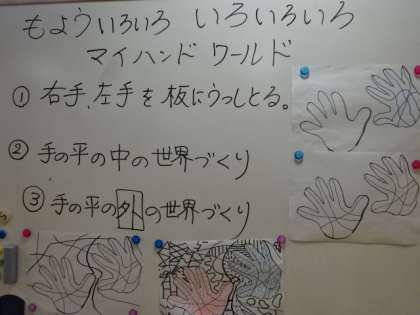 もよういろいろ いろいろいろ
マイハンド ワールド
① 右手、左手を板にうっしとる。
② 手の平の中の世界づくり
③ 手の平の外の世界づくり